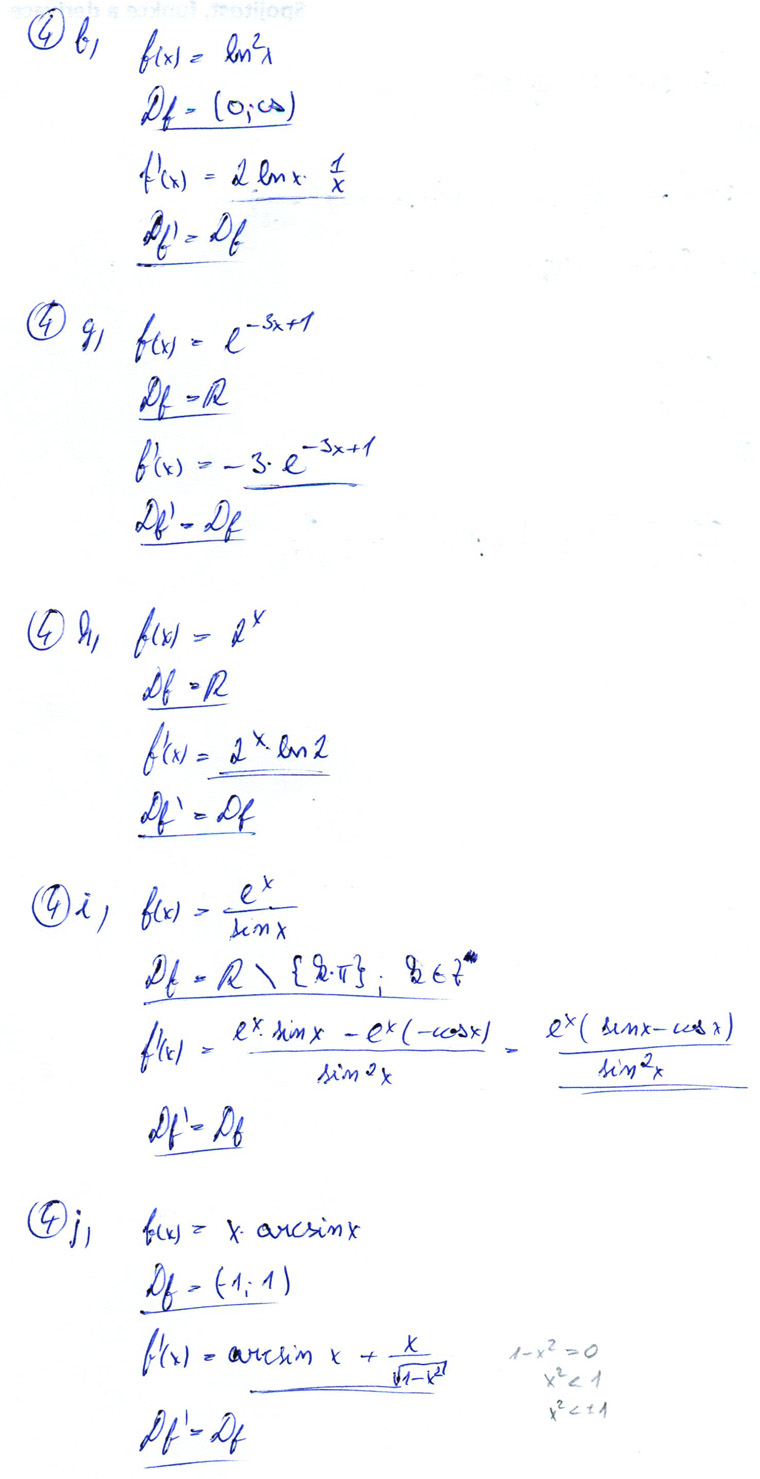 Spojitost, funkce a derivace
④ b, f(x) = ln²x
Df = (0; ∞)
f'(x) = 2 ln x · 1/x
Df' = Df
④ g, f(x) = e^(-3x+1)
Df = R
f'(x) = -3 · e^(-3x+1)
Df' = Df
④ h, f(x) = 2^x
Df = R
f'(x) = 2^x · ln 2
Df' = Df
④ i, f(x) = e^x / sin x
Df = R \ {k·π}; k ∈ Z
f'(x) = (e^x · sin x - e^x (-cos x)) / sin²x = e^x (sin x - cos x) / sin²x
Df' = Df
④ j, f(x) = x · arcsin x
Df = (-1; 1)
f'(x) = arcsin x + x / √(1-x²)
1-x² = 0
x² < 1
x² < ±1
Df' = Df